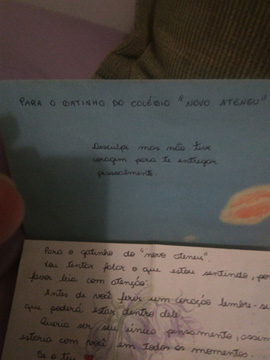 PARA O GATINHO DO COLÉGIO "NOVO ATENEU"
Desculpe mas não tive
coragem para te entregar
pessoalmente.
Para o gatinho do "novo ateneu"
Vou tentar falar o que estou sentindo, por
favor leia com atenção.
Antes de você ferir um coração lembre-se
que poderá estar dentro dele.
Queria ser seu único pensamento, assim
estaria com você em todos os momentos.
Se o teu